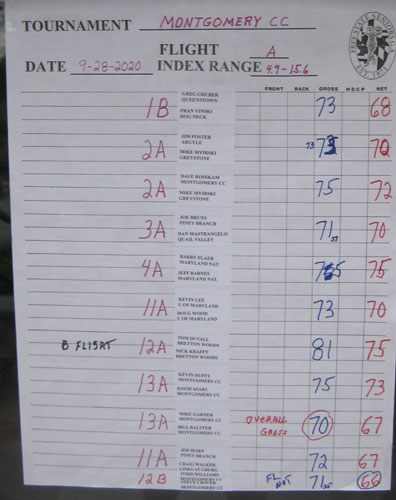 TOURNAMENT MONTGOMERY CC
FLIGHT A
DATE 9-28-2020 INDEX RANGE 4.9-15.6
FRONT BACK GROSS HDCP NET
GREG GRUBER
QUEENSTOWN
1B 73 68
FRAN VINSKI
HOG NECK
JIM FOSTER
ARGYLE
2A 73 70
MIKE MYIRSKI
GREYSTONE
DAVE ROSSKAM
MONTGOMERY CC
2A 75 72
MIKE MYIRSKI
GREYSTONE
JOE BRUNS
PINEY BRANCH
3A 71 70
DAN MASTRANGELO
QUAIL VALLEY
BARRY FLAER
MARYLAND NAT.
4A 75 75
JEFF BARNES
MARYLAND NAT.
KEVIN LEE
U OF MARYLAND
11A 73 70
DOUG WOOD
U OF MARYLAND
TOM DUVALL
BRETTON WOODS
B FLIGHT 12A 81 75
NICK KRAFFT
BRETTON WOODS
KEVIN DUFFY
MONTGOMERY CC
13A 75 73
DAVID ASAKI
MONTGOMERY CC
MIKE GARNER
MONTGOMERY CC
13A OVERALL GROSS 70 67
BILL BALSTER
MONTGOMERY CC
PINEY BRANCH
11A 72 67
CRAIG WALKER
TODD WILLIAMS
MONTGOMERY CC
12B FL NET 71 66
STEVE CROVER
MONTGOMERY CC